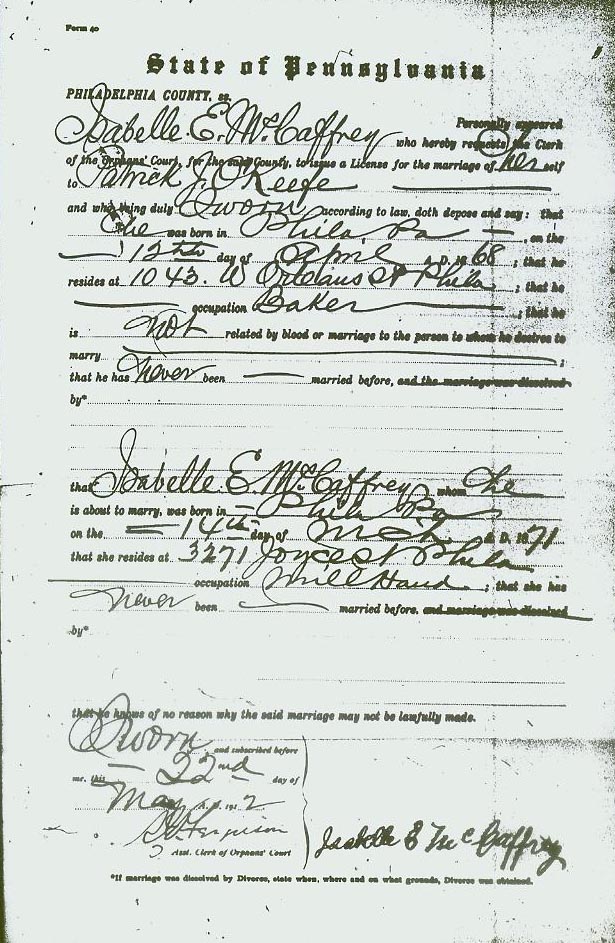 Form 40
State of Pennsylvania
PHILADELPHIA COUNTY, ss.
Personally appeared
Isabelle E. McCaffrey who hereby requests the Clerk
of the Orphans' Court, for the said County, to issue a License for the marriage of her self
to Patrick J. O'Keefe
and who being duly Sworn according to law, doth depose and say: that
he was born in Phila Pa, on the
12th day of April A. D. 1868; that he
resides at 1043 W Orleans St Phila; that he
occupation Baker; that he
is not related by blood or marriage to the person to whom he desires to
marry;
that he has never been married before, and the marriage was dissolved
by*
that Isabelle E. McCaffrey whom he
is about to marry, was born in Phila Pa
on the 14th day of Mch A. D. 1871
that she resides at 3271 Joyce St Phila
occupation Mill Hand; that she has
never been married before, and marriage was dissolved
by*
that he knows of no reason why the said marriage may not be lawfully made.
Sworn and subscribed before
me, this 22nd day of
May A. D. 1912
Ferguson
Asst. Clerk of Orphans' Court
Isabelle E McCaffrey
*If marriage was dissolved by Divorce, state when, where and on what grounds, Divorce was obtained.